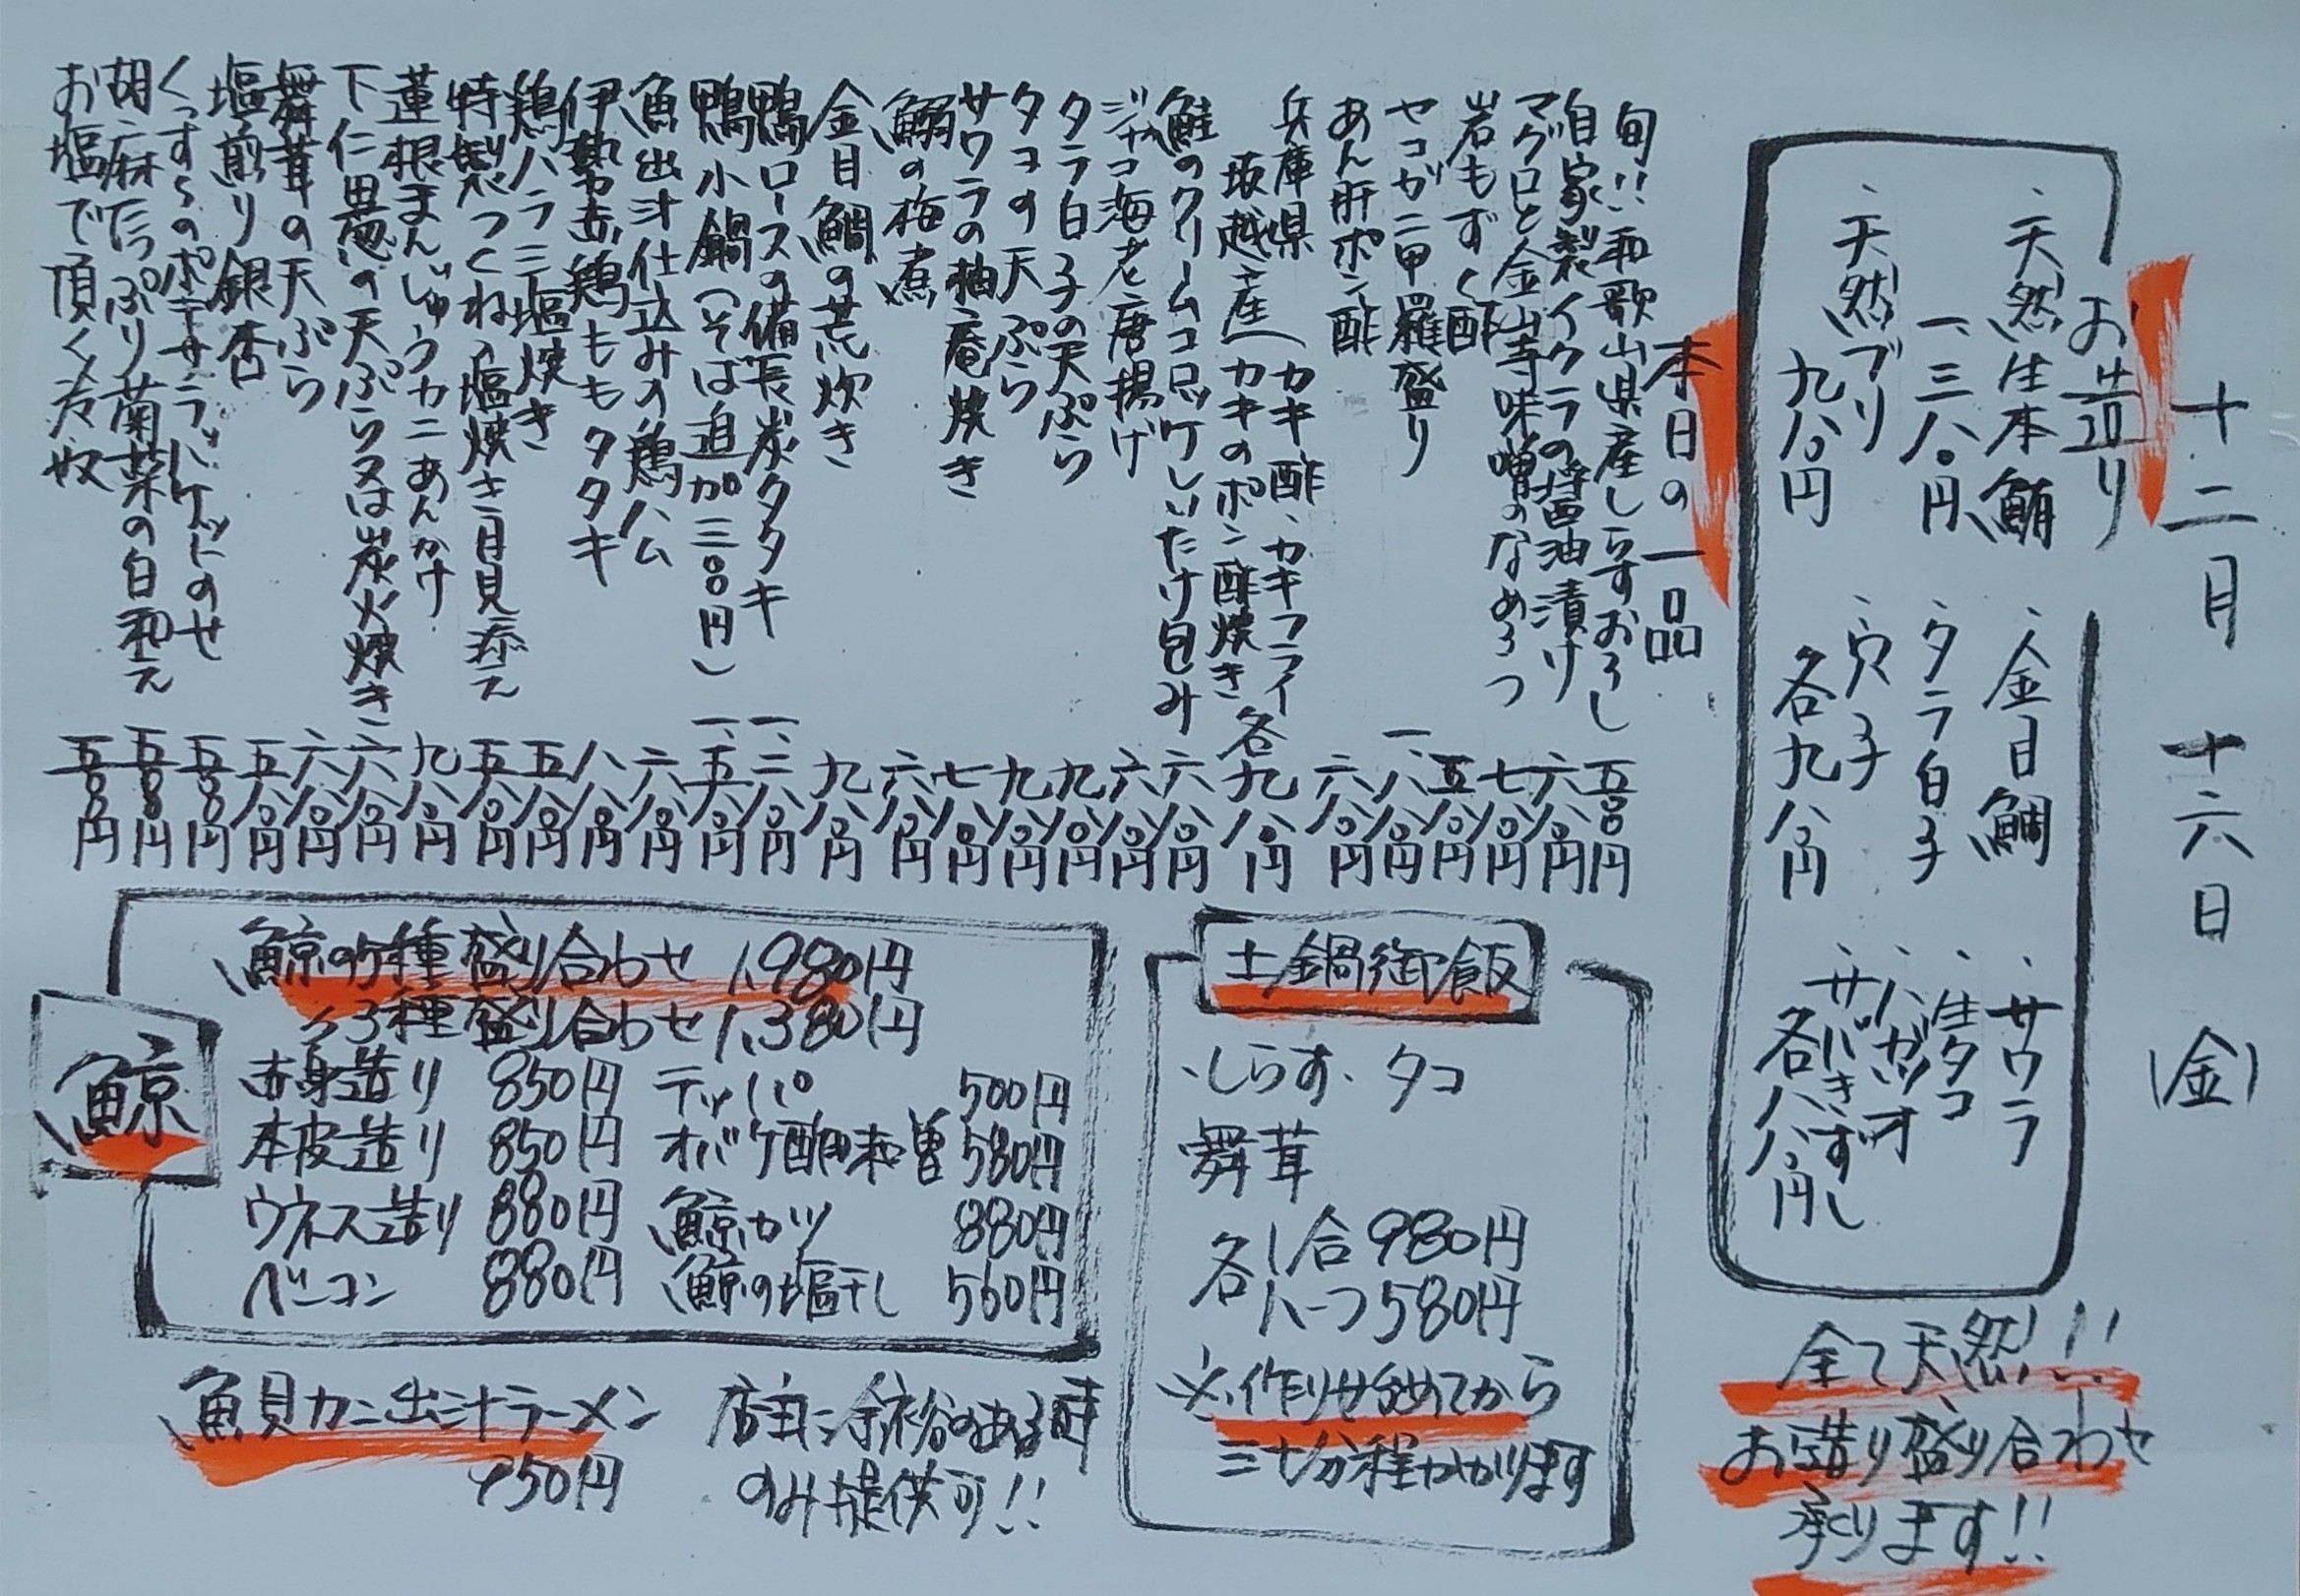 十二月 十六日 (金)
お造り
、天然生本鮪
一、三八〇円
、天然ブリ
九八〇円
、金目鯛
、タラ白子
、穴子
各九八〇円
、サワラ
、生タコ
、ハガツオ
、サバきずし
各八八〇円
全て天然!!
お造り盛り合わせ
承ります!!
本日の一品
旬!!和歌山県産しらすおろし 五〇〇円
自家製イクラの醤油漬け 六八〇円
マグロと金山寺味噌のなめろう 七八〇円
岩もずく酢 五八〇円
セコガニ甲羅盛り 一、八八〇円
あん肝ポン酢 六八〇円
兵庫県坂越産(カキ酢、カキフライ
カキのポン酢焼き 各九八〇円
鮭のクリームコロッケしいたけ包み 六八〇円
ジャコ海老唐揚げ 六八〇円
タラ白子の天ぷら 九八〇円
タコの天ぷら 九八〇円
サワラの柚庵焼き 七八〇円
鰯の梅煮 六八〇円
金目鯛の荒炊き 九八〇円
鴨ロースの備長炭タタキ 一、三八〇円
鴨小鍋(そば追加三〇〇円) 一、五八〇円
魚出汁仕込みの鶏ハム 六八〇円
伊勢赤鶏ももタタキ 八八〇円
鶏ハラミ塩焼き 五八〇円
特製つくね、塩焼き月見添え 五八〇円
蓮根まんじゅうカニあんかけ 九八〇円
下仁田葱の天ぷら又は炭火焼き 六八〇円
舞茸の天ぷら 六八〇円
塩煎り銀杏 五八〇円
くっすらのポテサララ、バケットのせ 五〇〇円
胡麻たっぷり菊菜の白和え 五〇〇円
お塩で頂く冷奴 五〇〇円
土鍋御飯
、しらす、タコ
舞茸
各1合980円
各ハーフ580円
※作り始めてから
三十分程かかります
鯨
鯨の5種盛り合わせ 1,980円
〃3種盛り合わせ 1,380円
赤身造り 850円 テッパ 500円
本皮造り 850円 オバケ酢味噌 580円
ウネス造り 880円 鯨カツ 880円
ベーコン 880円 鯨の塩干し 560円
魚貝カニ出汁ラーメン
950円
店主に余裕のある時
のみ提供可!!